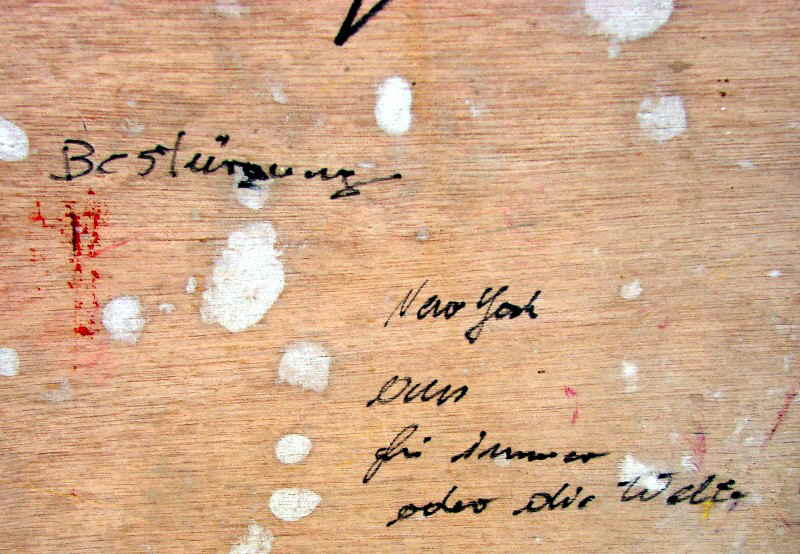 Bestürzung
New York
für immer
oder die Welt